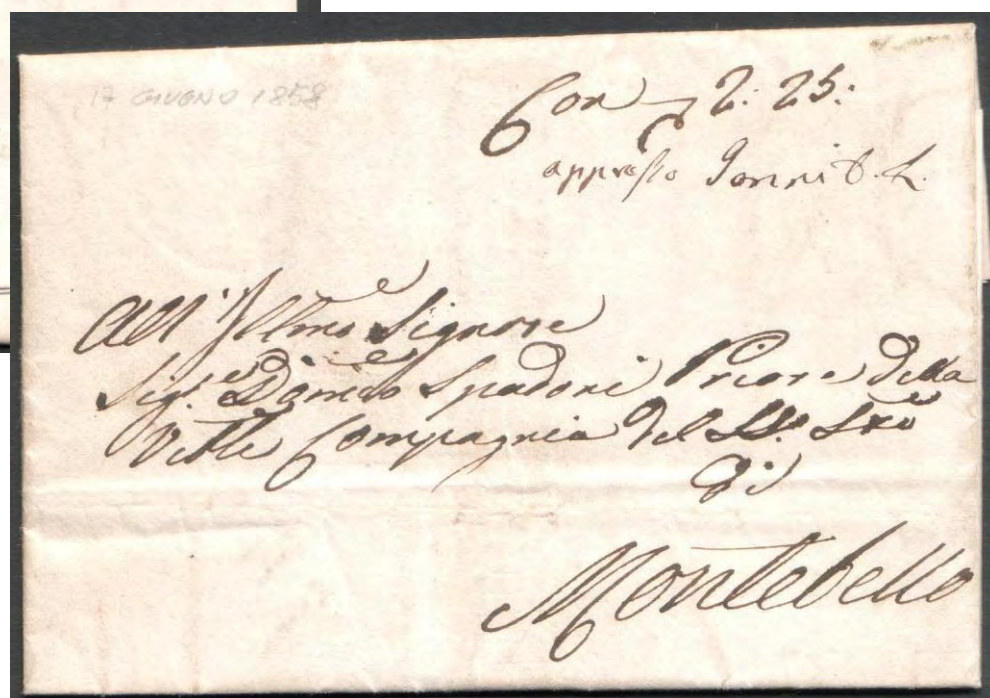 17 GIUGNO 1858
Con 2: 25:
appresso
All' Illmo Signore
Sig.e Domco Spadoni Priore della
Vble Compagnia del SS.o Sxo
di
Montebello